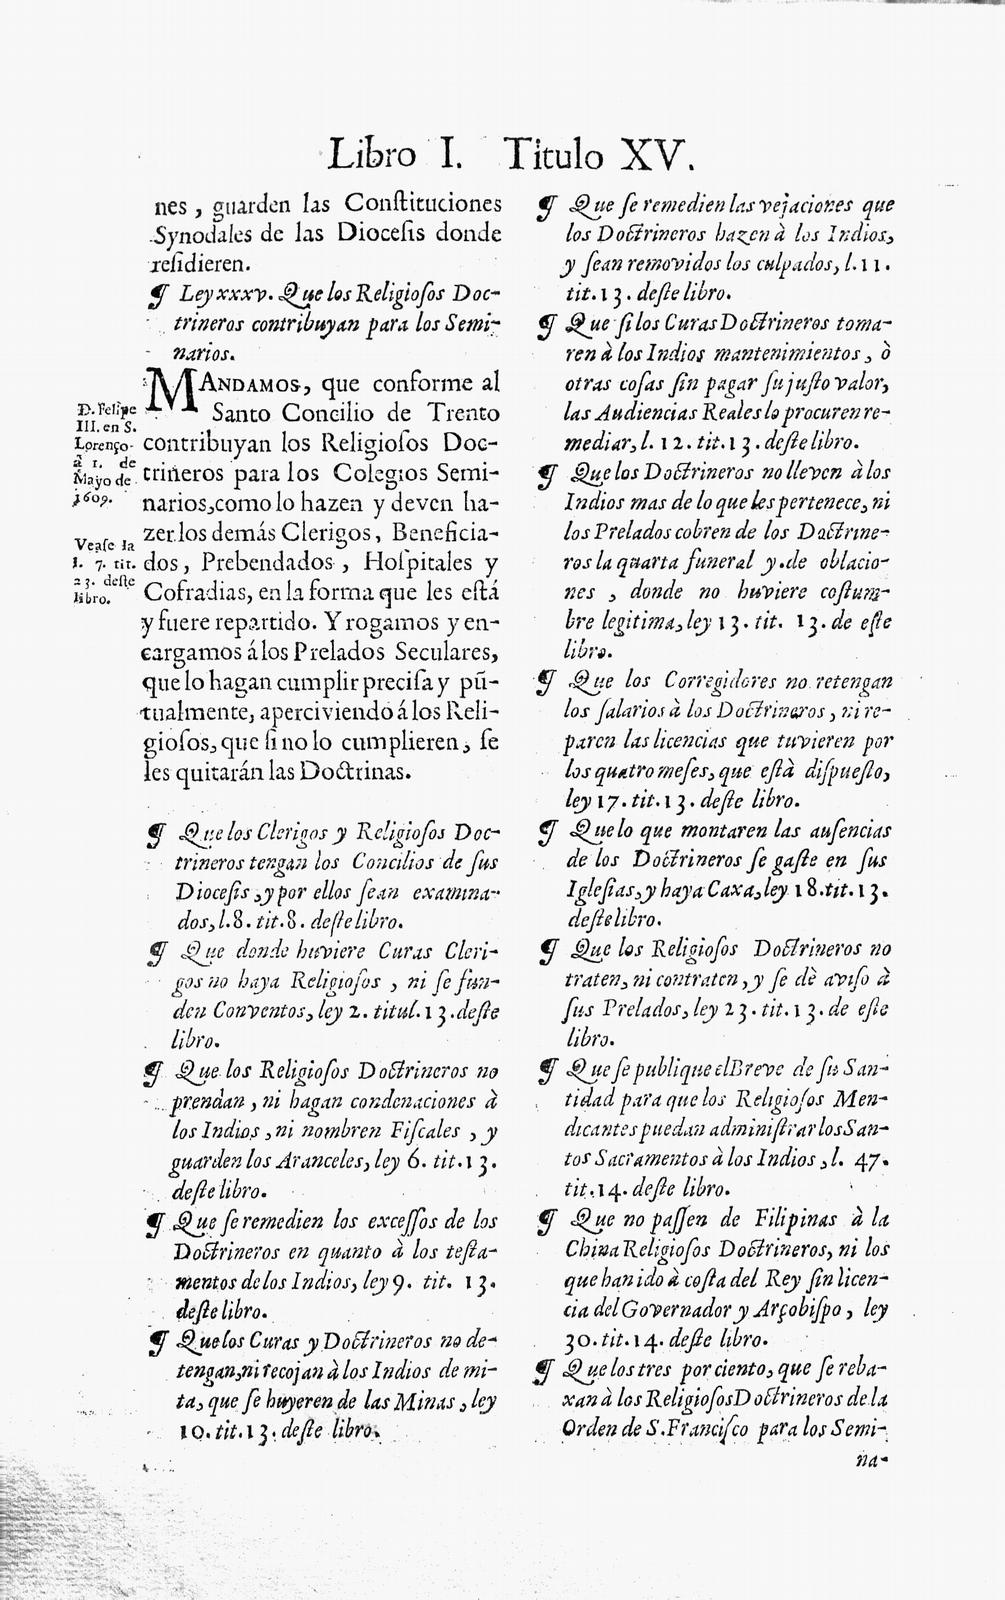 Libro I. Titulo XV.
nes, guarden las Constituciones
Synodales de las Diocesis donde
residieren.
¶ Ley xxxv. Que los Religiosos Doc-
trineros contribuyan para los Semi-
narios.
D. Felipe
III. en S.
Lorenço
à 1. de
Mayo de
1609.
Vease la
l. 7. tit.
23. deste
libro.
MANDAMOS, que conforme al
Santo Concilio de Trento
contribuyan los Religiosos Doc-
trineros para los Colegios Semi-
narios, como lo hazen y deven ha-
zer los demás Clerigos, Beneficia-
dos, Prebendados, Hospitales y
Cofradias, en la forma que les está
y fuere repartido. Y rogamos y en-
cargamos á los Prelados Seculares,
que lo hagan cumplir precisa y pũ-
tualmente, aperciviendo á los Reli-
giosos, que si no lo cumplieren, se
les quitarán las Doctrinas.
¶ Que los Clerigos y Religiosos Doc-
trineros tengan los Concilios de sus
Diocesis, y por ellos sean examina-
dos, l.8. tit.8. deste libro.
¶ Que donde huviere Curas Cleri-
gos no haya Religiosos, ni se fun-
den Conventos, ley 2. titul.13. deste
libro.
¶ Que los Religiosos Doctrineros no
prendan, ni hagan condenaciones à
los Indios, ni nombren Fiscales, y
guarden los Aranceles, ley 6. tit.13.
deste libro.
¶ Que se remedien los excessos de los
Doctrineros en quanto à los testa-
mentos de los Indios, ley 9. tit. 13.
deste libro.
¶ Que los Curas y Doctrineros no de-
tengan, ni recojan à los Indios de mi-
ta, que se huyeren de las Minas, ley
10. tit.13. deste libro.
¶ Que se remedien las vejaciones que
los Doctrineros hazen à los Indios,
y sean removidos los culpados, l.11.
tit.13. deste libro.
¶ Que si los Curas Doctrineros toma-
ren à los Indios mantenimientos, ò
otras cosas sin pagar su justo valor,
las Audiencias Reales lo procuren re-
mediar, l. 12. tit.13. deste libro.
¶ Que los Doctrineros no lleven à los
Indios mas de lo que les pertenece, ni
los Prelados cobren de los Doctrine-
ros la quarta funeral y de oblacio-
nes, donde no huviere costum-
bre legitima, ley 13. tit. 13. de este
libro.
¶ Que los Corregidores no retengan
los salarios à los Doctrineros, ni re-
paren las licencias que tuvieren por
los quatro meses, que està dispuesto,
ley 17. tit.13. deste libro.
¶ Que lo que montaren las ausencias
de los Doctrineros se gaste en sus
Iglesias, y haya Caxa, ley 18. tit.13.
deste libro.
¶ Que los Religiosos Doctrineros no
traten, ni contraten, y se dè aviso à
sus Prelados, ley 23. tit.13. de este
libro.
¶ Que se publique el Breve de su San-
tidad para que los Religiosos Men-
dicantes puedan administrar los San-
tos Sacramentos à los Indios, l. 47.
tit.14. deste libro.
¶ Que no passen de Filipinas à la
China Religiosos Doctrineros, ni los
que han ido à costa del Rey sin licen-
cia del Governador y Arçobispo, ley
30. tit.14. deste libro.
¶ Que los tres por ciento, que se reba-
xan à los Religiosos Doctrineros de la
Orden de S. Francisco para los Semi-
na-